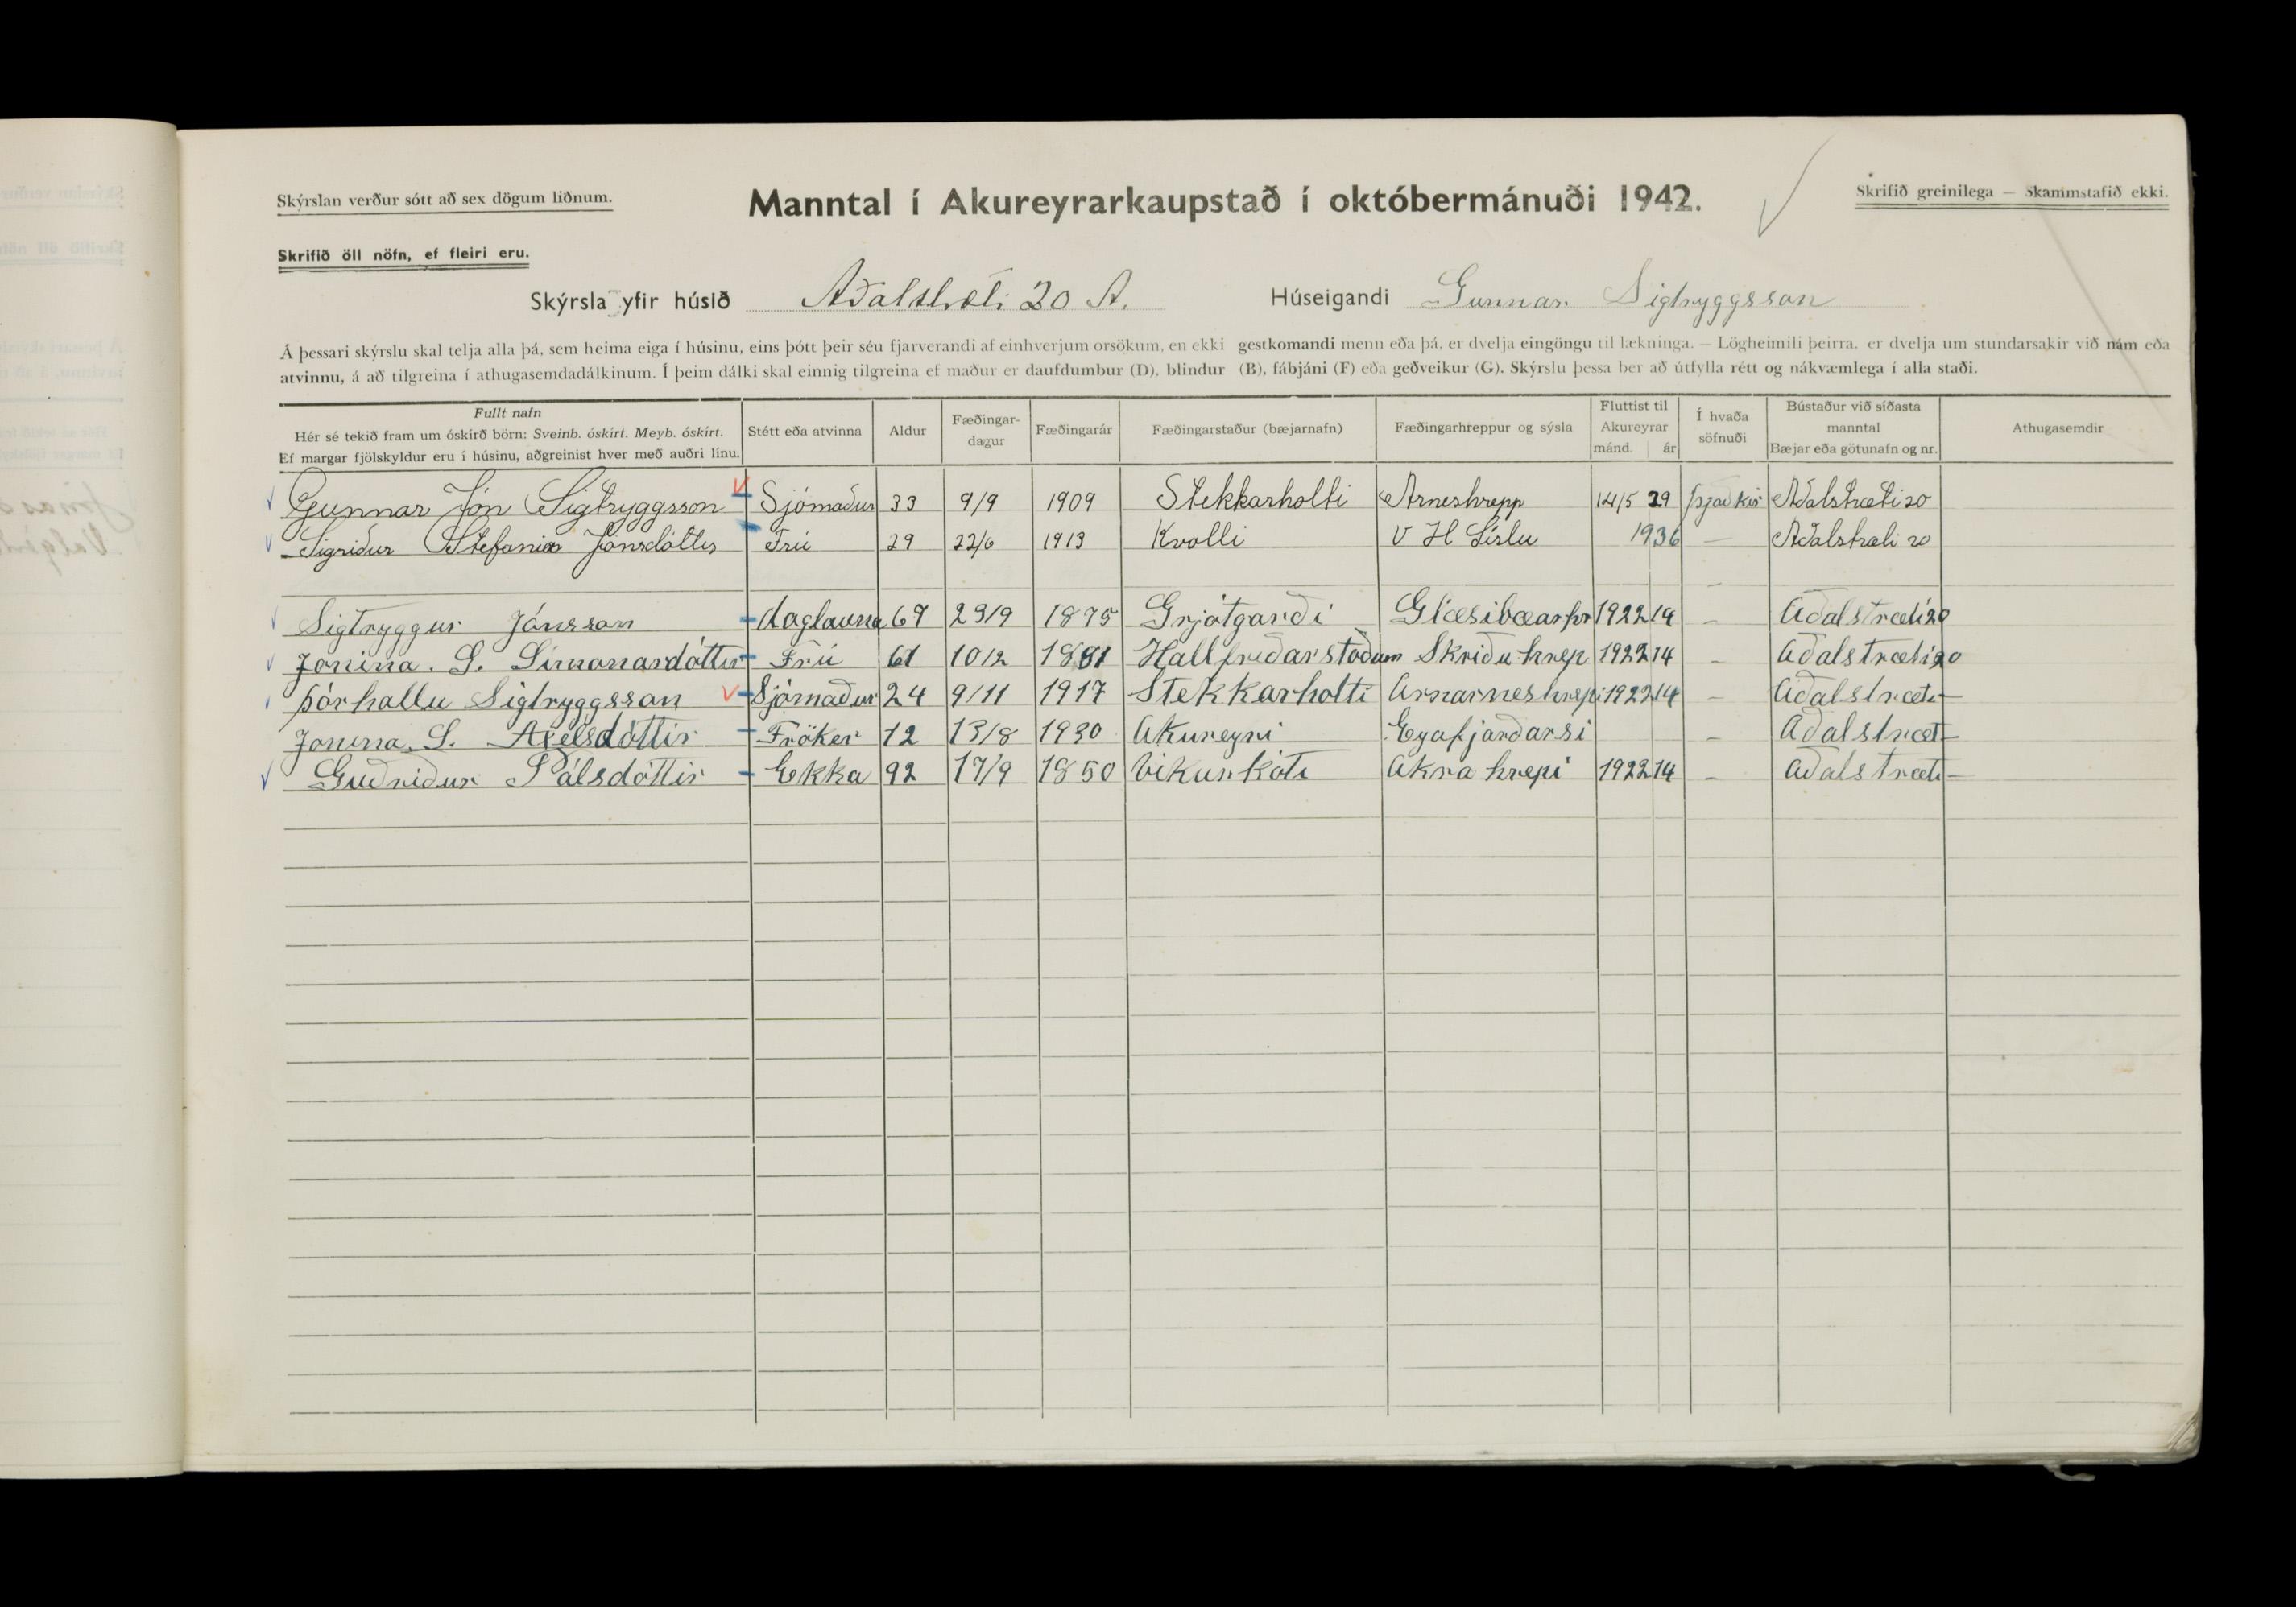 Skýrslan verður sótt að sex dögum liðnum.
Manntal í Akureyrarkaupstað í októbermánuði 1942.
Skrifið greinilega — Skammstafið ekki.
Skrifið öll nöfn, ef fleiri eru.
Skýrsla yfir húsið Aðalstræti 20 A. Húseigandi Gunnar Sigtryggsson
Á þessari skýrslu skal telja alla þá, sem heima eiga í húsinu, eins þótt þeir séu fjarverandi af einhverjum orsökum, en ekki gestkomandi menn eða þá, er dvelja eingöngu til lækninga. — Lögheimili þeirra, er dvelja um stundarsakir við nám eða
atvinnu, á að tilgreina í athugasemdadálkinum. Í þeim dálki skal einnig tilgreina ef maður er daufdumbur (D), blindur (B), fábjáni (F) eða geðveikur (G). Skýrslu þessa ber að útfylla rétt og nákvæmlega í alla staði.
Fullt nafn
Hér sé tekið fram um óskírð börn: Sveinb. óskírt. Meyb. óskírt.
Ef margar fjölskyldur eru í húsinu, aðgreinist hver með auðri línu.
Stétt eða atvinna
Aldur
Fæðingar-
dagur
Fæðingarár
Fæðingarstaður (bæjarnafn)
Fæðingarhreppur og sýsla
Fluttist til
Akureyrar
mánd. ár
Í hvaða
söfnuði
Bústaður við síðasta
manntal
Bæjar eða götunafn og nr.
Athugasemdir
Gunnar Jón Sigtryggsson Sjómaður 33 9/9 1909 Stekkarholti Arneshrepp 14/5 29 Þjoðkir Aðalstræti 20
Sigriður Stefania Jónsdóttir Frú 29 22/6 1913 Kvolli V H Síslu 1936 — Aðalstræti 20
Sigtryggur Jónsson daglauna 67 29/9 1875 Grjótgarði Glæsibæarhr 1922 14 — Aðalstræti 20
Jonina. S. Simonardóttir Frú 61 10/2 1881 Hallfreðarstoðum Skriðuhrep 1922 14 — Aðalstræti 20
Þórhallu Sigtryggsson Sjómaður 24 9/11 1917 Stekkarholti Arnarneshrepi 1922 14 — Aðalstræti —
Jonina. S. Axelsdóttir Fröken 12 13/8 1930 Akureyri Eyafjarðarsi — Aðalstræt —
Guðriður Pálsdóttir Ekka 92 17/9 1850 Vikurkoti Akrahrepi 1922 14 — Aðalstræti —